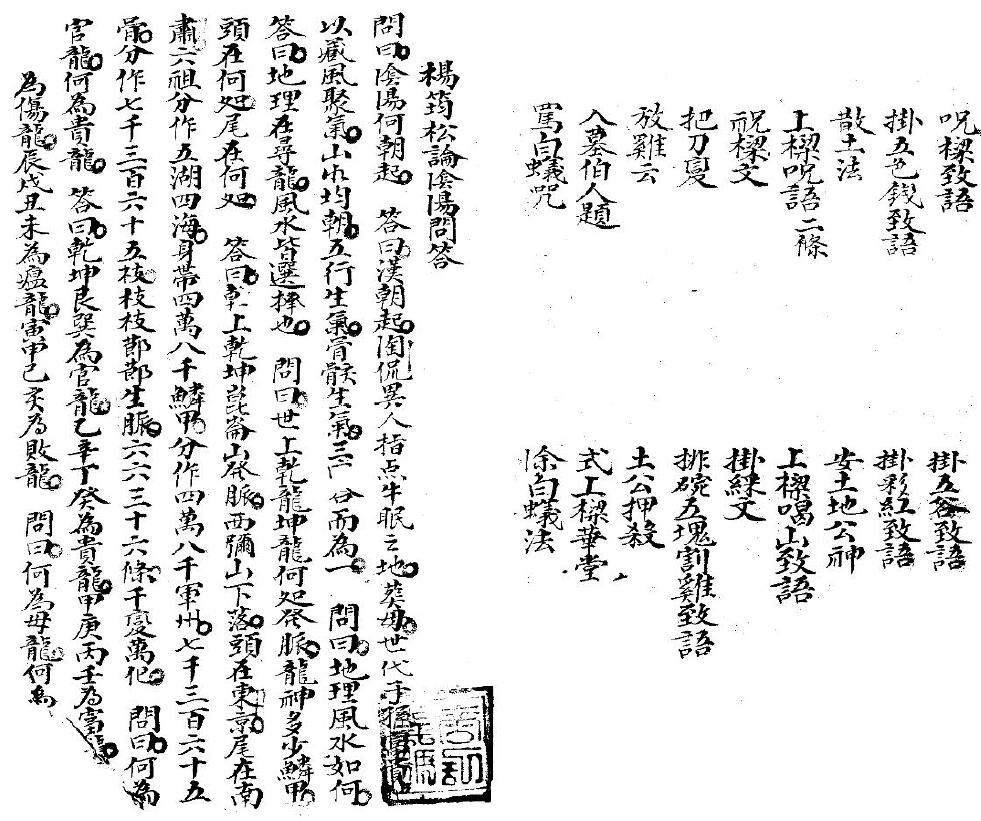 呪樑致語
掛五色錢致語
散土法
上樑呪語二條
祝樑文
把刀変
放雞云
入墓伯人題
罵白蟻咒
掛五谷致語
掛彩紅致語
安土地公神
上樑喝山致語
掛綵文
排碗五塊割雞致語
土公押殺
式上樑華堂
除白蟻法
楊筠松論陰陽問答
問曰陰陽何朝起 答曰漢朝起陶侃異人指点牛眠之地葬母世代子孫富貴
以藏風聚氣山水均朝五行生氣骨骸生氣三戸合而為一 問曰地理風水如何
答曰地理在尋龍風水皆選擇也 問曰世上乾龍坤龍何処發脈龍神多少鱗甲
頭在何処尾在何処 答曰乾上乾坤崑崙山發脈西彌山下落頭在東京尾在南
肅六祖分作五湖四海身帶四萬八千鱗甲分作四萬八千軍州七千三百六十五
骨分作七千三百六十五枝枝枝節節生脈六六三十六條千変萬化 問曰何為
官龍何為貴龍 答曰乾坤艮巽為官龍乙辛丁癸為貴龍甲庚丙壬為富龍
為傷龍辰戌丑未為瘟龍寅申巳亥為敗龍 問曰何為母龍何為